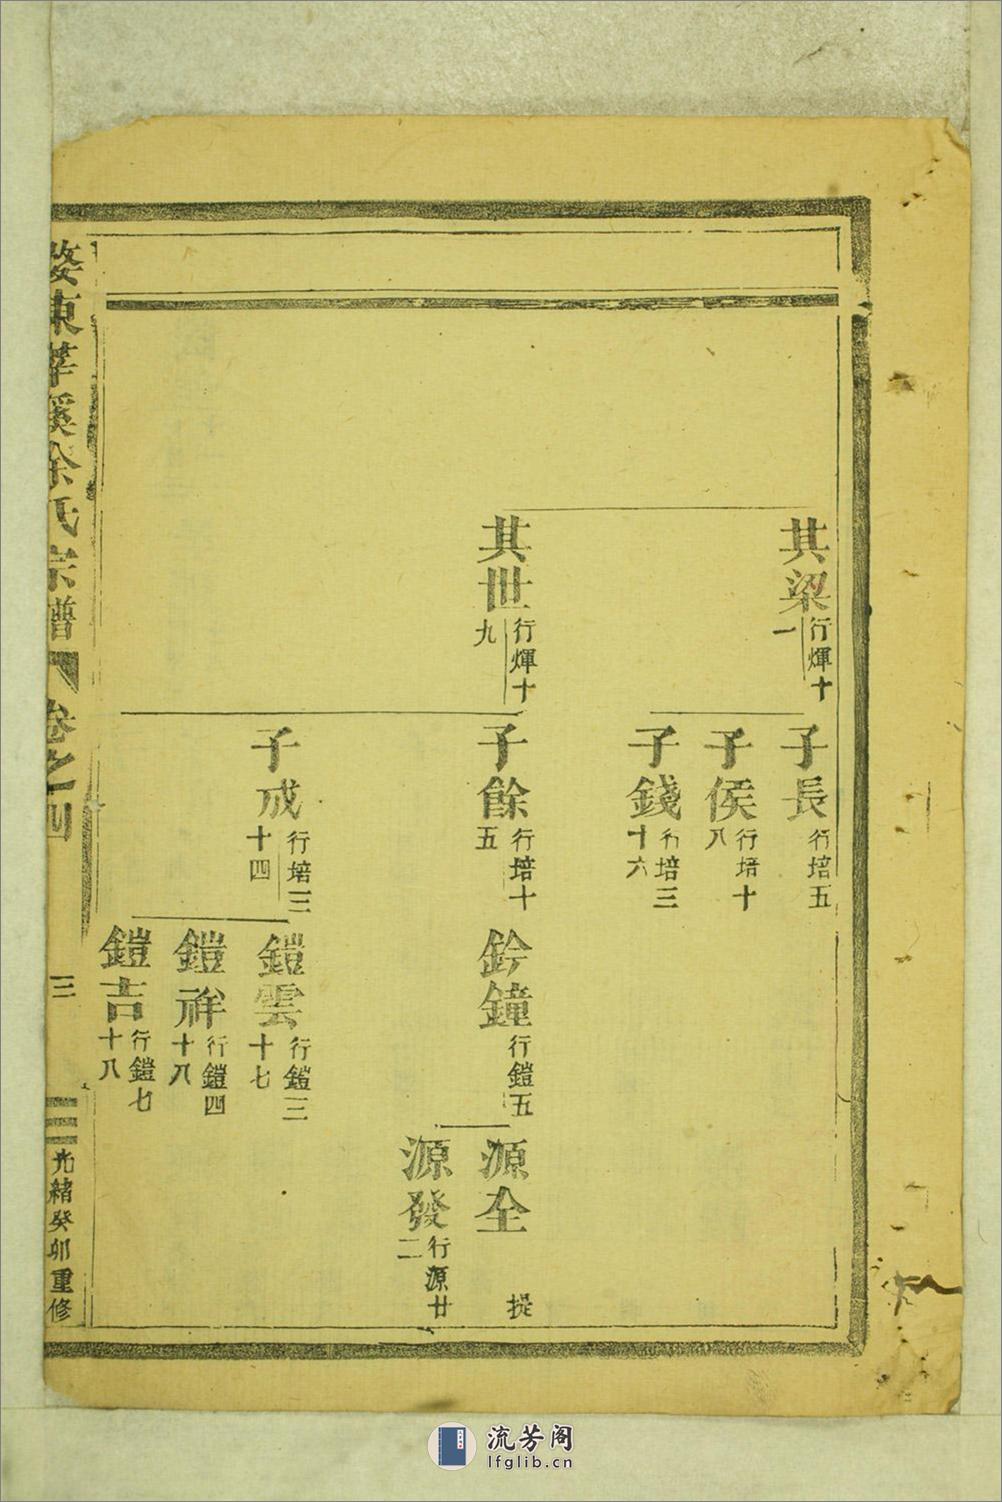 其梁
行煇十
一
其世
行煇十
九
子長
行培五
子侯
行培十
八
子錢
行培三
十六
子餘
行培十
五
子成
行培三
十四
鈴鐘
行鎧五
鎧雲
行鎧三
十七
鎧祥
行鎧四
十八
鎧吉
行鎧七
十八
源全
提
源發
行源廿
二
婺東莘溪余氏宗譜
卷之四
三
光緒癸卯重修
流芳阁
lfglib.cn